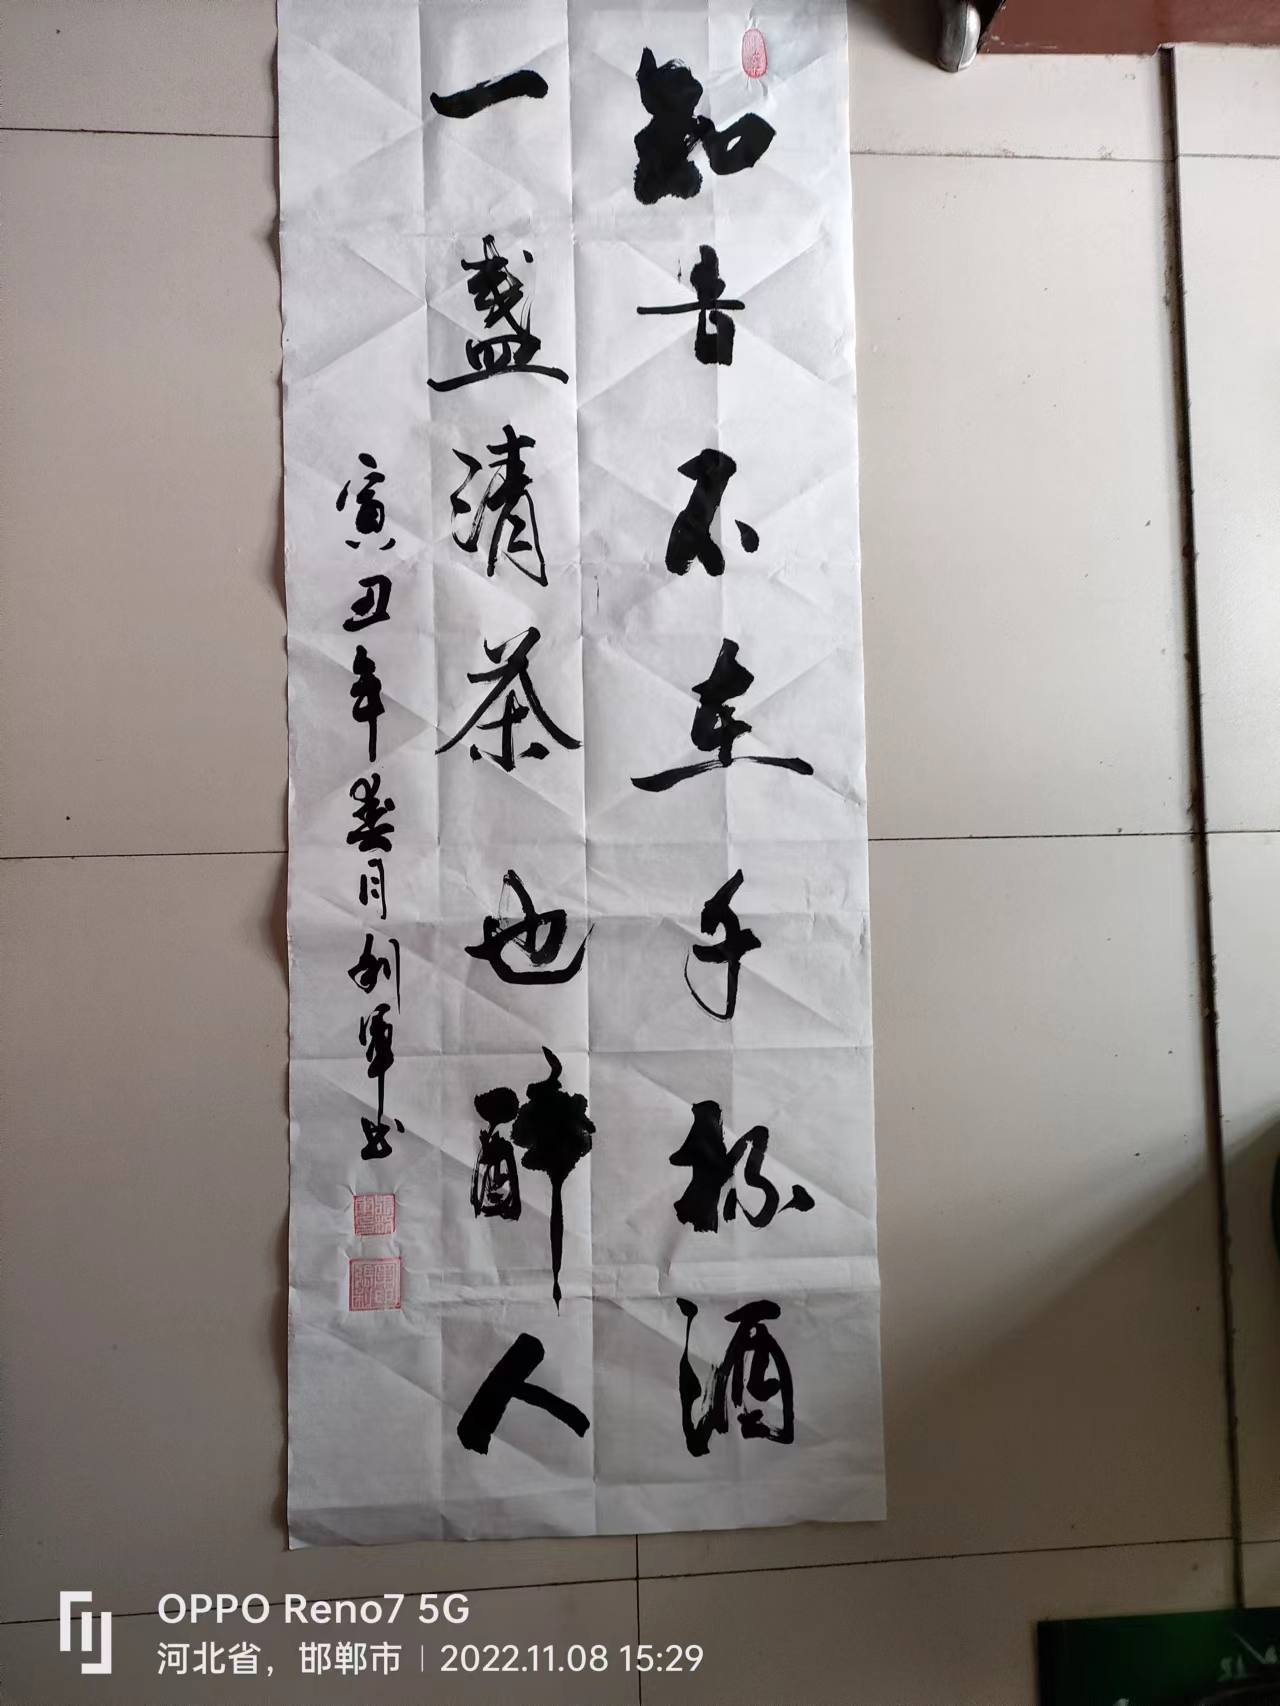 知音不在千杯酒
一盏清茶也醉人
寅丑年春月利军书
OPPO Reno7 5G
河北省，邯郸市 | 2022.11.08 15:29